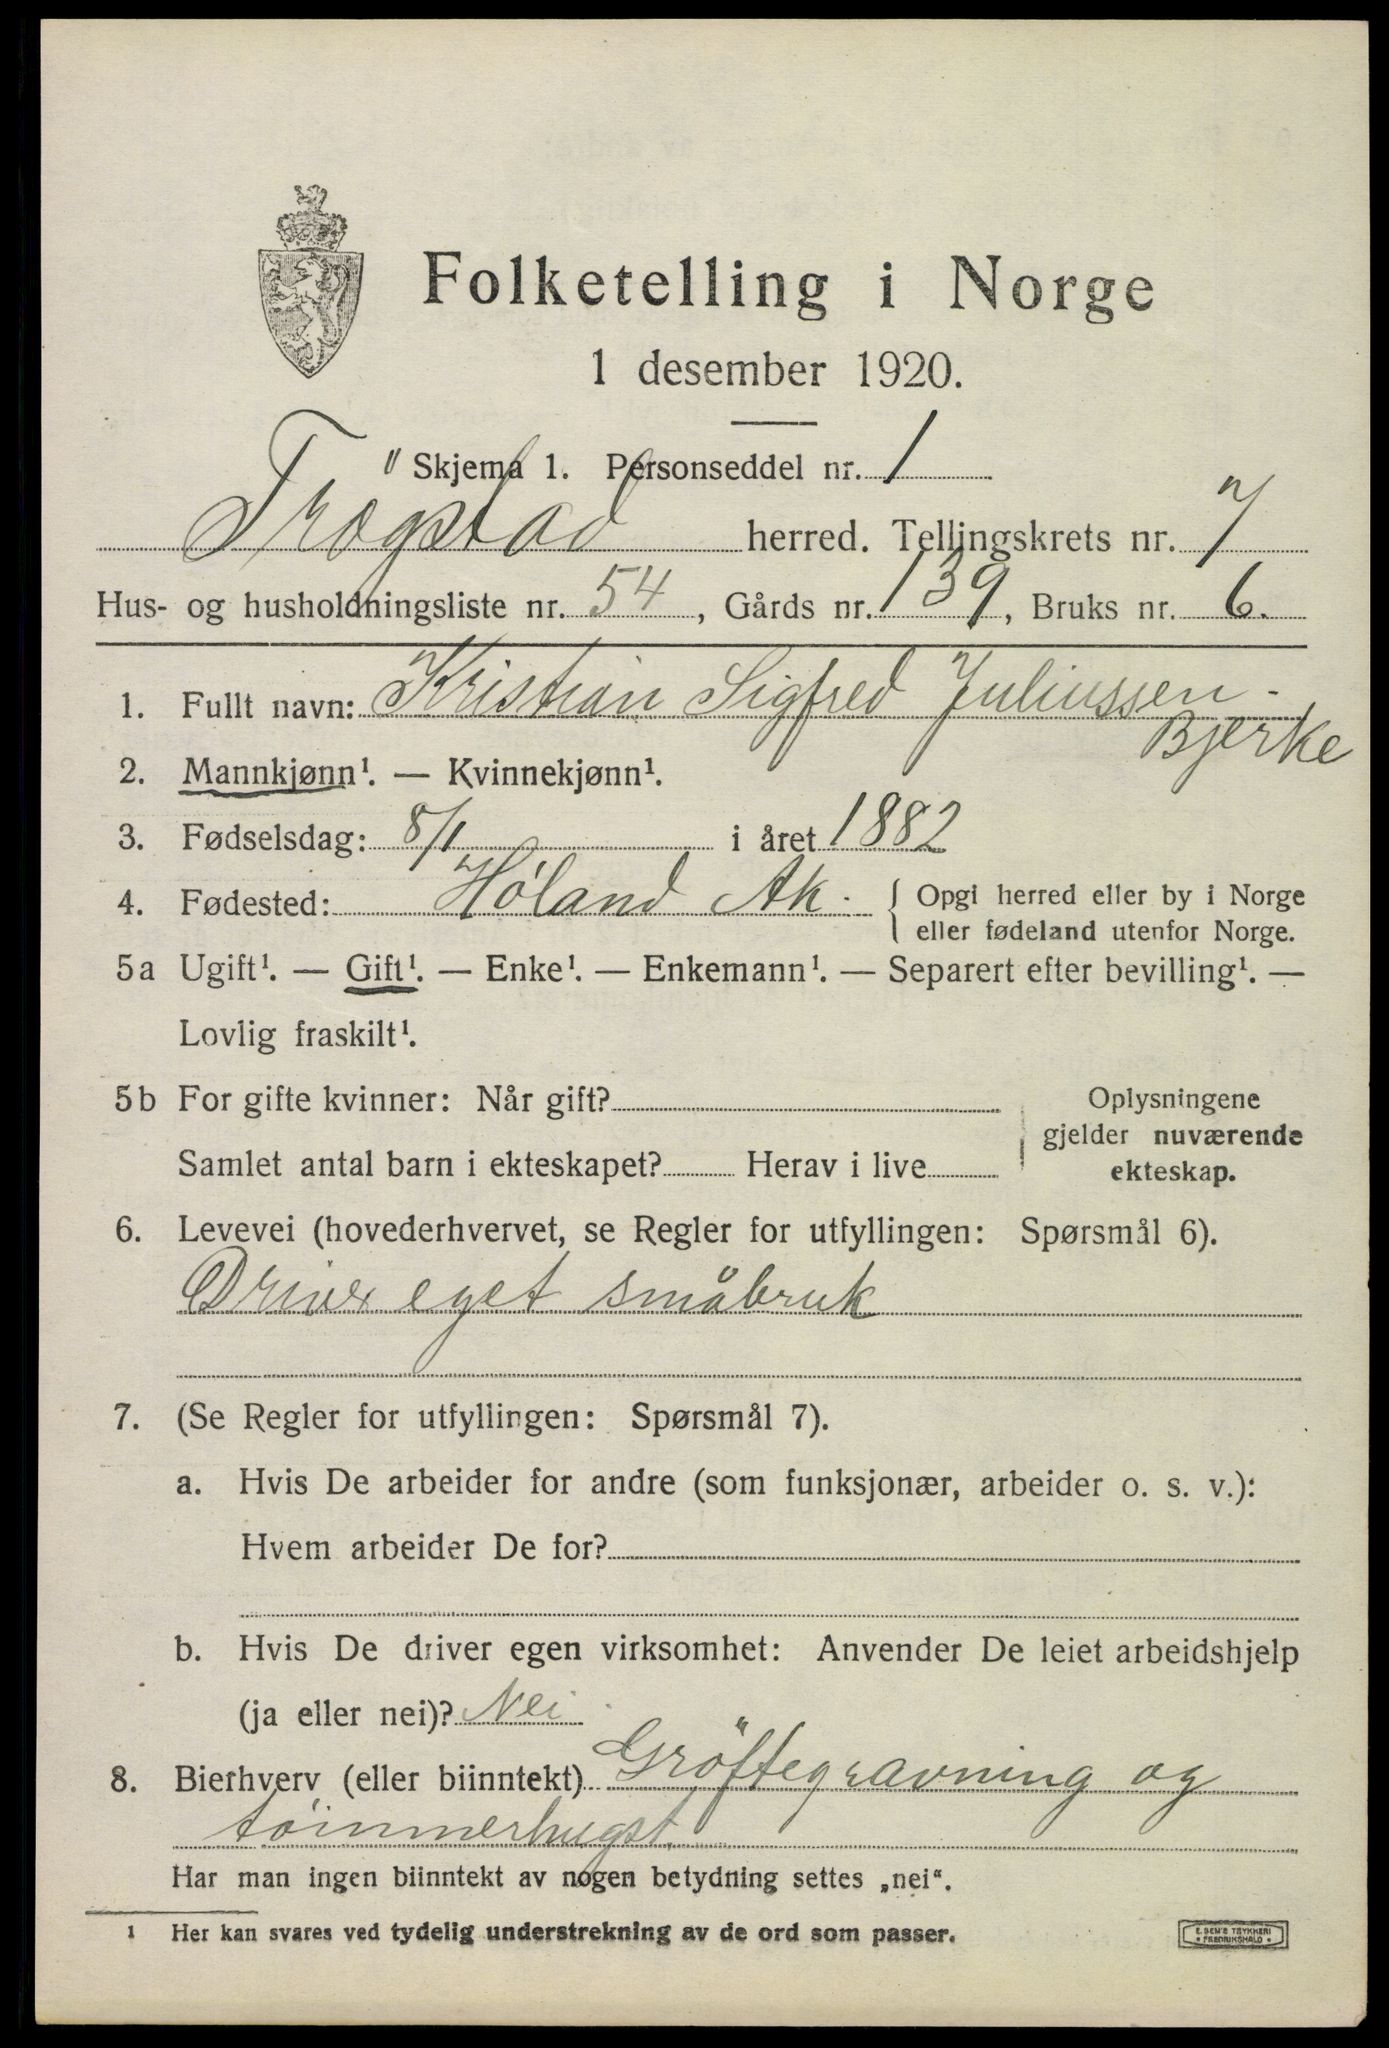 Folketelling i Norge
1 desember 1920.
Skjema 1. Personseddel nr. 1
Trøgstad herred. Tellingskrets nr. 7
Hus- og husholdningsliste nr. 54, Gårds nr. 139, Bruks nr. 6.
1. Fullt navn: Kristian Sigfred Juliussen-
Bjerke
2. Mannkjønn¹. — Kvinnekjønn¹.
3. Fødselsdag: 8/1 i året 1882
4. Fødested: Høland Ak. { Opgi herred eller by i Norge
eller fødeland utenfor Norge.
5a Ugift¹. — Gift¹. — Enke¹. — Enkemann¹. — Separert efter bevilling¹. —
Lovlig fraskilt¹.
5b For gifte kvinner: Når gift?
Samlet antal barn i ekteskapet? Herav i live
Oplysningene
gjelder nuværende
ekteskap.
6. Levevei (hovederhvervet, se Regler for utfyllingen: Spørsmål 6).
Driver eget småbruk
7. (Se Regler for utfyllingen: Spørsmål 7).
a. Hvis De arbeider for andre (som funksjonær, arbeider o. s. v.):
Hvem arbeider De for?
b. Hvis De driver egen virksomhet: Anvender De leiet arbeidshjelp
(ja eller nei)? Nei
8. Bierhverv (eller biinntekt) Gröftegravning og
tömmerhugst.
Har man ingen biinntekt av nogen betydning settes „nei“.
¹ Her kan svares ved tydelig understrekning av de ord som passer.
E. SEM'S TRYKKERI
• FREDRIKSHALD •